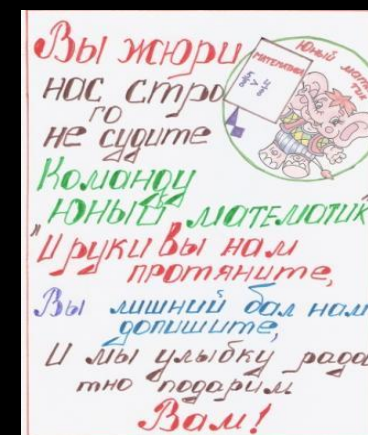 Вы жюри
нас стро
го
не судите
Команду
"Юный математик
И руки Вы нам
протяните,
Вы лишний бал нам
допишите,
И мы улыбку рада
тно подарим
Вам!
Юный матема
тик
МАТЕМАТИКА
5/8 > 4/8